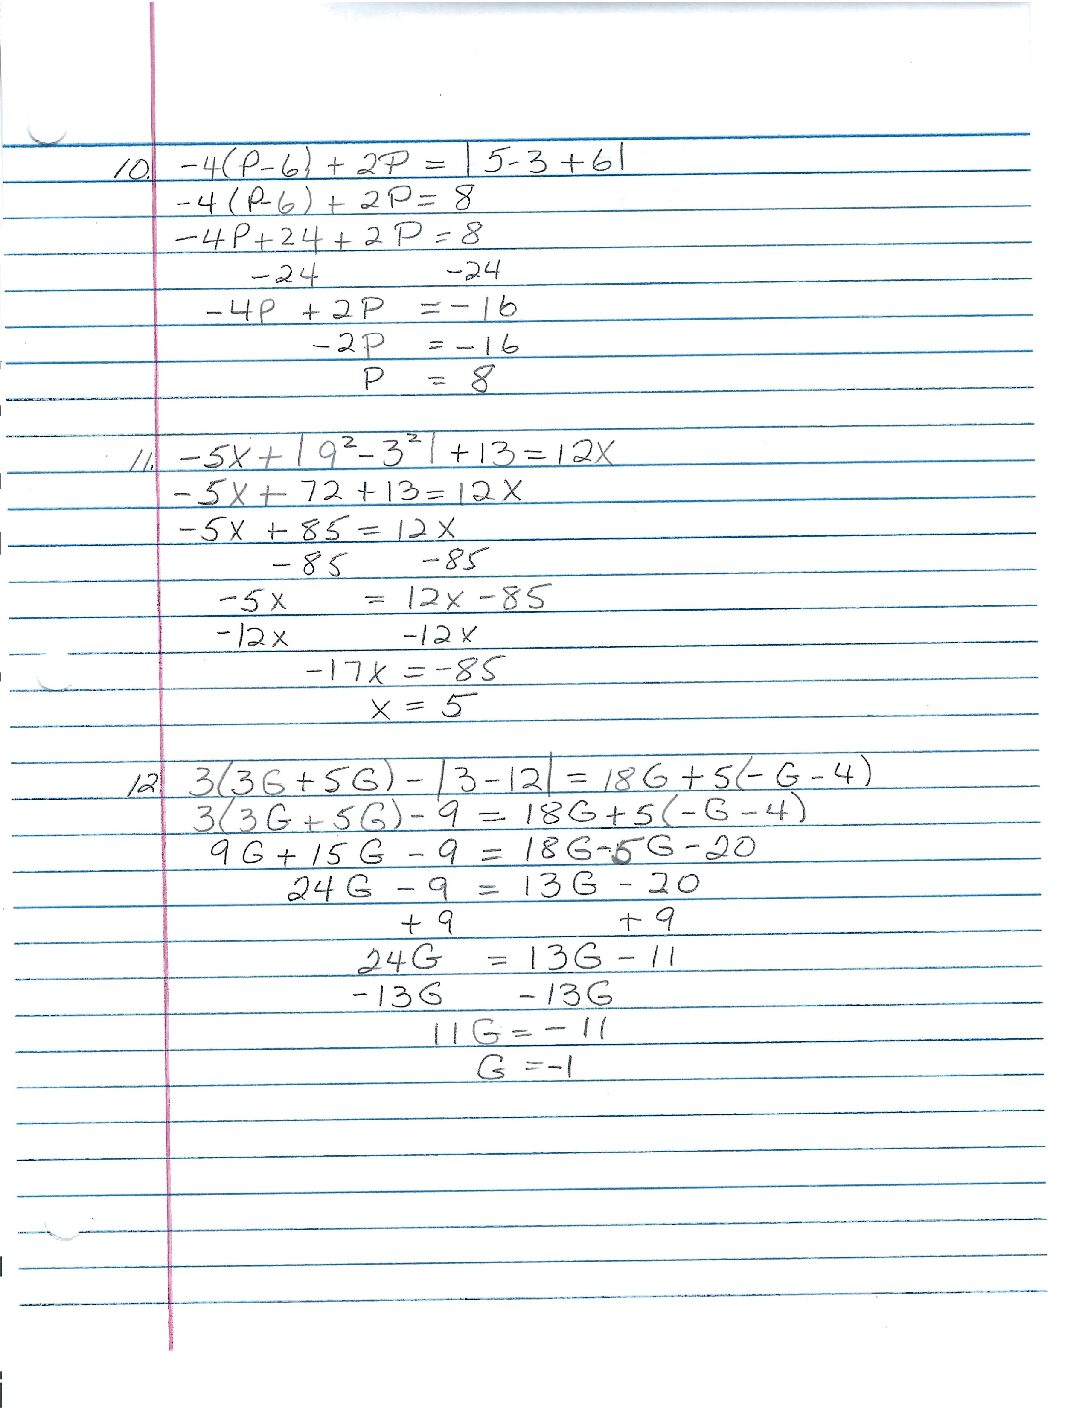 10. -4(P-6) + 2P = |5-3+6|
-4(P-6) + 2P = 8
-4P+24+2P=8
-24 -24
-4P + 2P = -16
-2P = -16
P = 8
11. -5X+|9²-3²|+13=12X
-5X+72+13=12X
-5X+85=12X
-85 -85
-5X = 12X-85
-12X -12X
-17X=-85
X=5
12. 3(3G+5G)-|3-12|=18G+5(-G-4)
3(3G+5G)-9=18G+5(-G-4)
9G+15G-9=18G-5G-20
24G-9=13G-20
+9 +9
24G = 13G-11
-13G -13G
11G=-11
G=-1